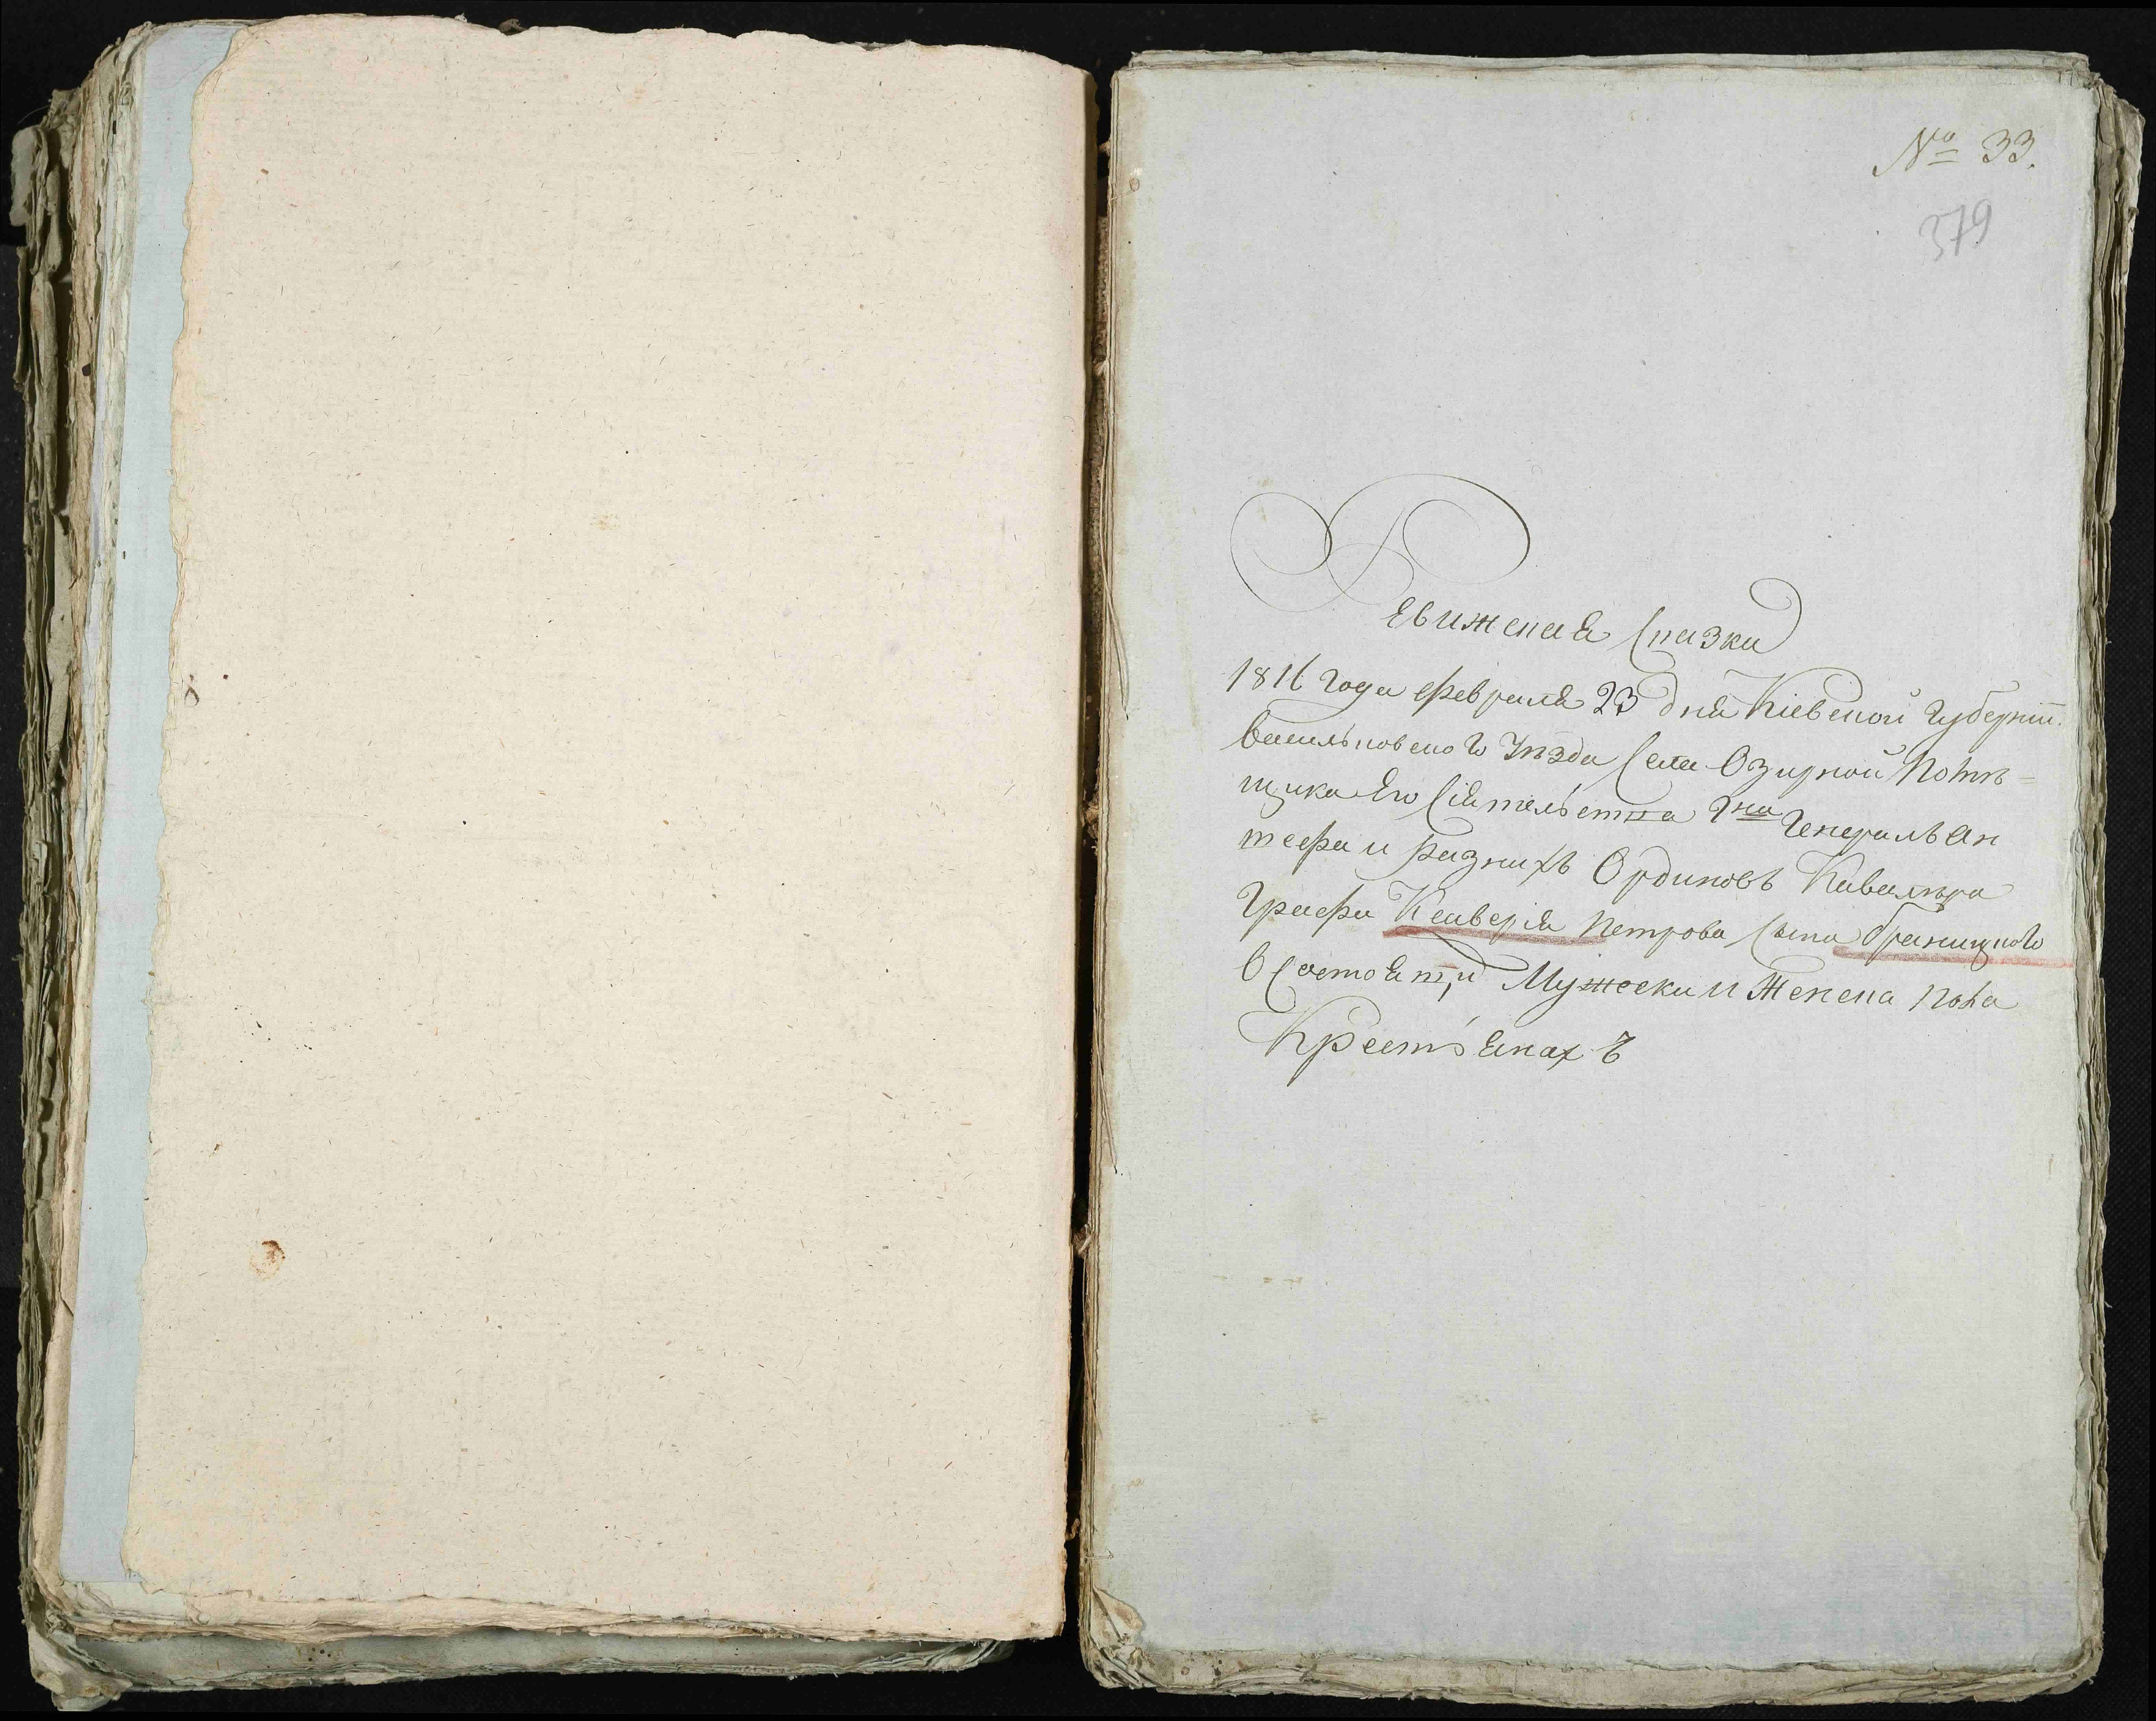 № 33.
379
Ревижская Сказка
1816 года февраля 23 дня Кіевской Губерніи.
васильковского Уѣзда Села Озирной Помѣ=
щика Его Сіятельства Гна Генералъ Ан
шефа и разнихъ Ординовъ Кавалѣра
Графа Ксаверія Петрова Сына браницкого
о Состоящи Мужеска и Женска пола
Крестьянахъ